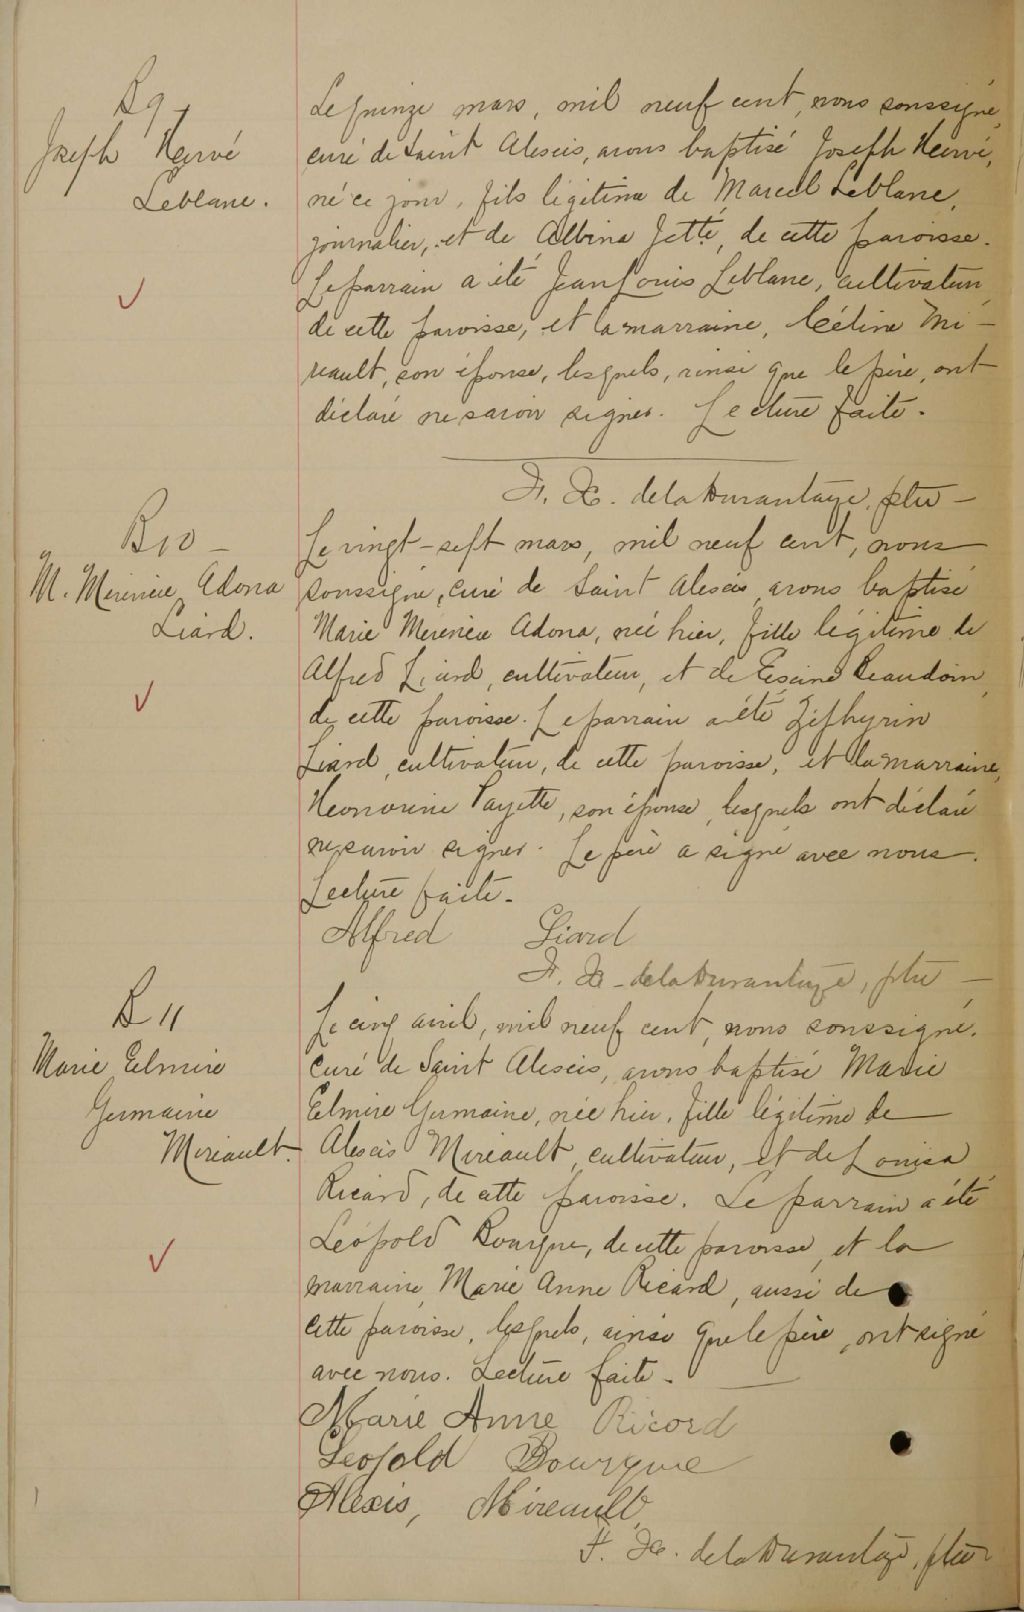 B 9
Joseph Hervé
Leblanc.
Le quinze mars, mil neuf cent, nous soussigné,
curé de Saint Alexis, avons baptisé Joseph Hervé,
né ce jour, fils légitime de Marcel Leblanc,
journalier, et de Albina Jetté, de cette paroisse.
Le parrain a été Jean Louis Leblanc, cultivateur,
de cette paroisse, et la marraine, Céline Mi-
reault, son épouse, lesquels, ainsi que le père, ont
déclaré ne savoir signer. Lecture faite.
F. X. de la Durantaye, ptre
B 10
M. Adona
Liard.
Le vingt-sept mars, mil neuf cent, nous
soussigné, curé de Saint Alexis, avons baptisé
Marie Adona, née hier, fille légitime de
Alfred Liard, cultivateur, et de Beaudoin,
de cette paroisse. Le parrain a été Zéphyrin
Liard, cultivateur, de cette paroisse, et la marraine,
Honorine Payette, son épouse, lesquels ont déclaré
ne savoir signer. Le père a signé avec nous.
Lecture faite.
Alfred Liard
F. X. de la Durantaye, ptre
B 11
Marie Elmire
Germaine
Mireault.
Le cinq avril, mil neuf cent, nous soussigné,
curé de Saint Alexis, avons baptisé Marie
Elmire Germaine, née hier, fille légitime de
Alexis Mireault, cultivateur, et de Louisa
Ricard, de cette paroisse. Le parrain a été
Léopold Bourque, de cette paroisse, et la
marraine, Marie Anne Ricard, aussi de
cette paroisse, lesquels, ainsi que le père, ont signé
avec nous. Lecture faite.
Marie Anne Ricord
Leopold Bourque
Alexis, Mireault,
F. X. de la Durantaye, ptre